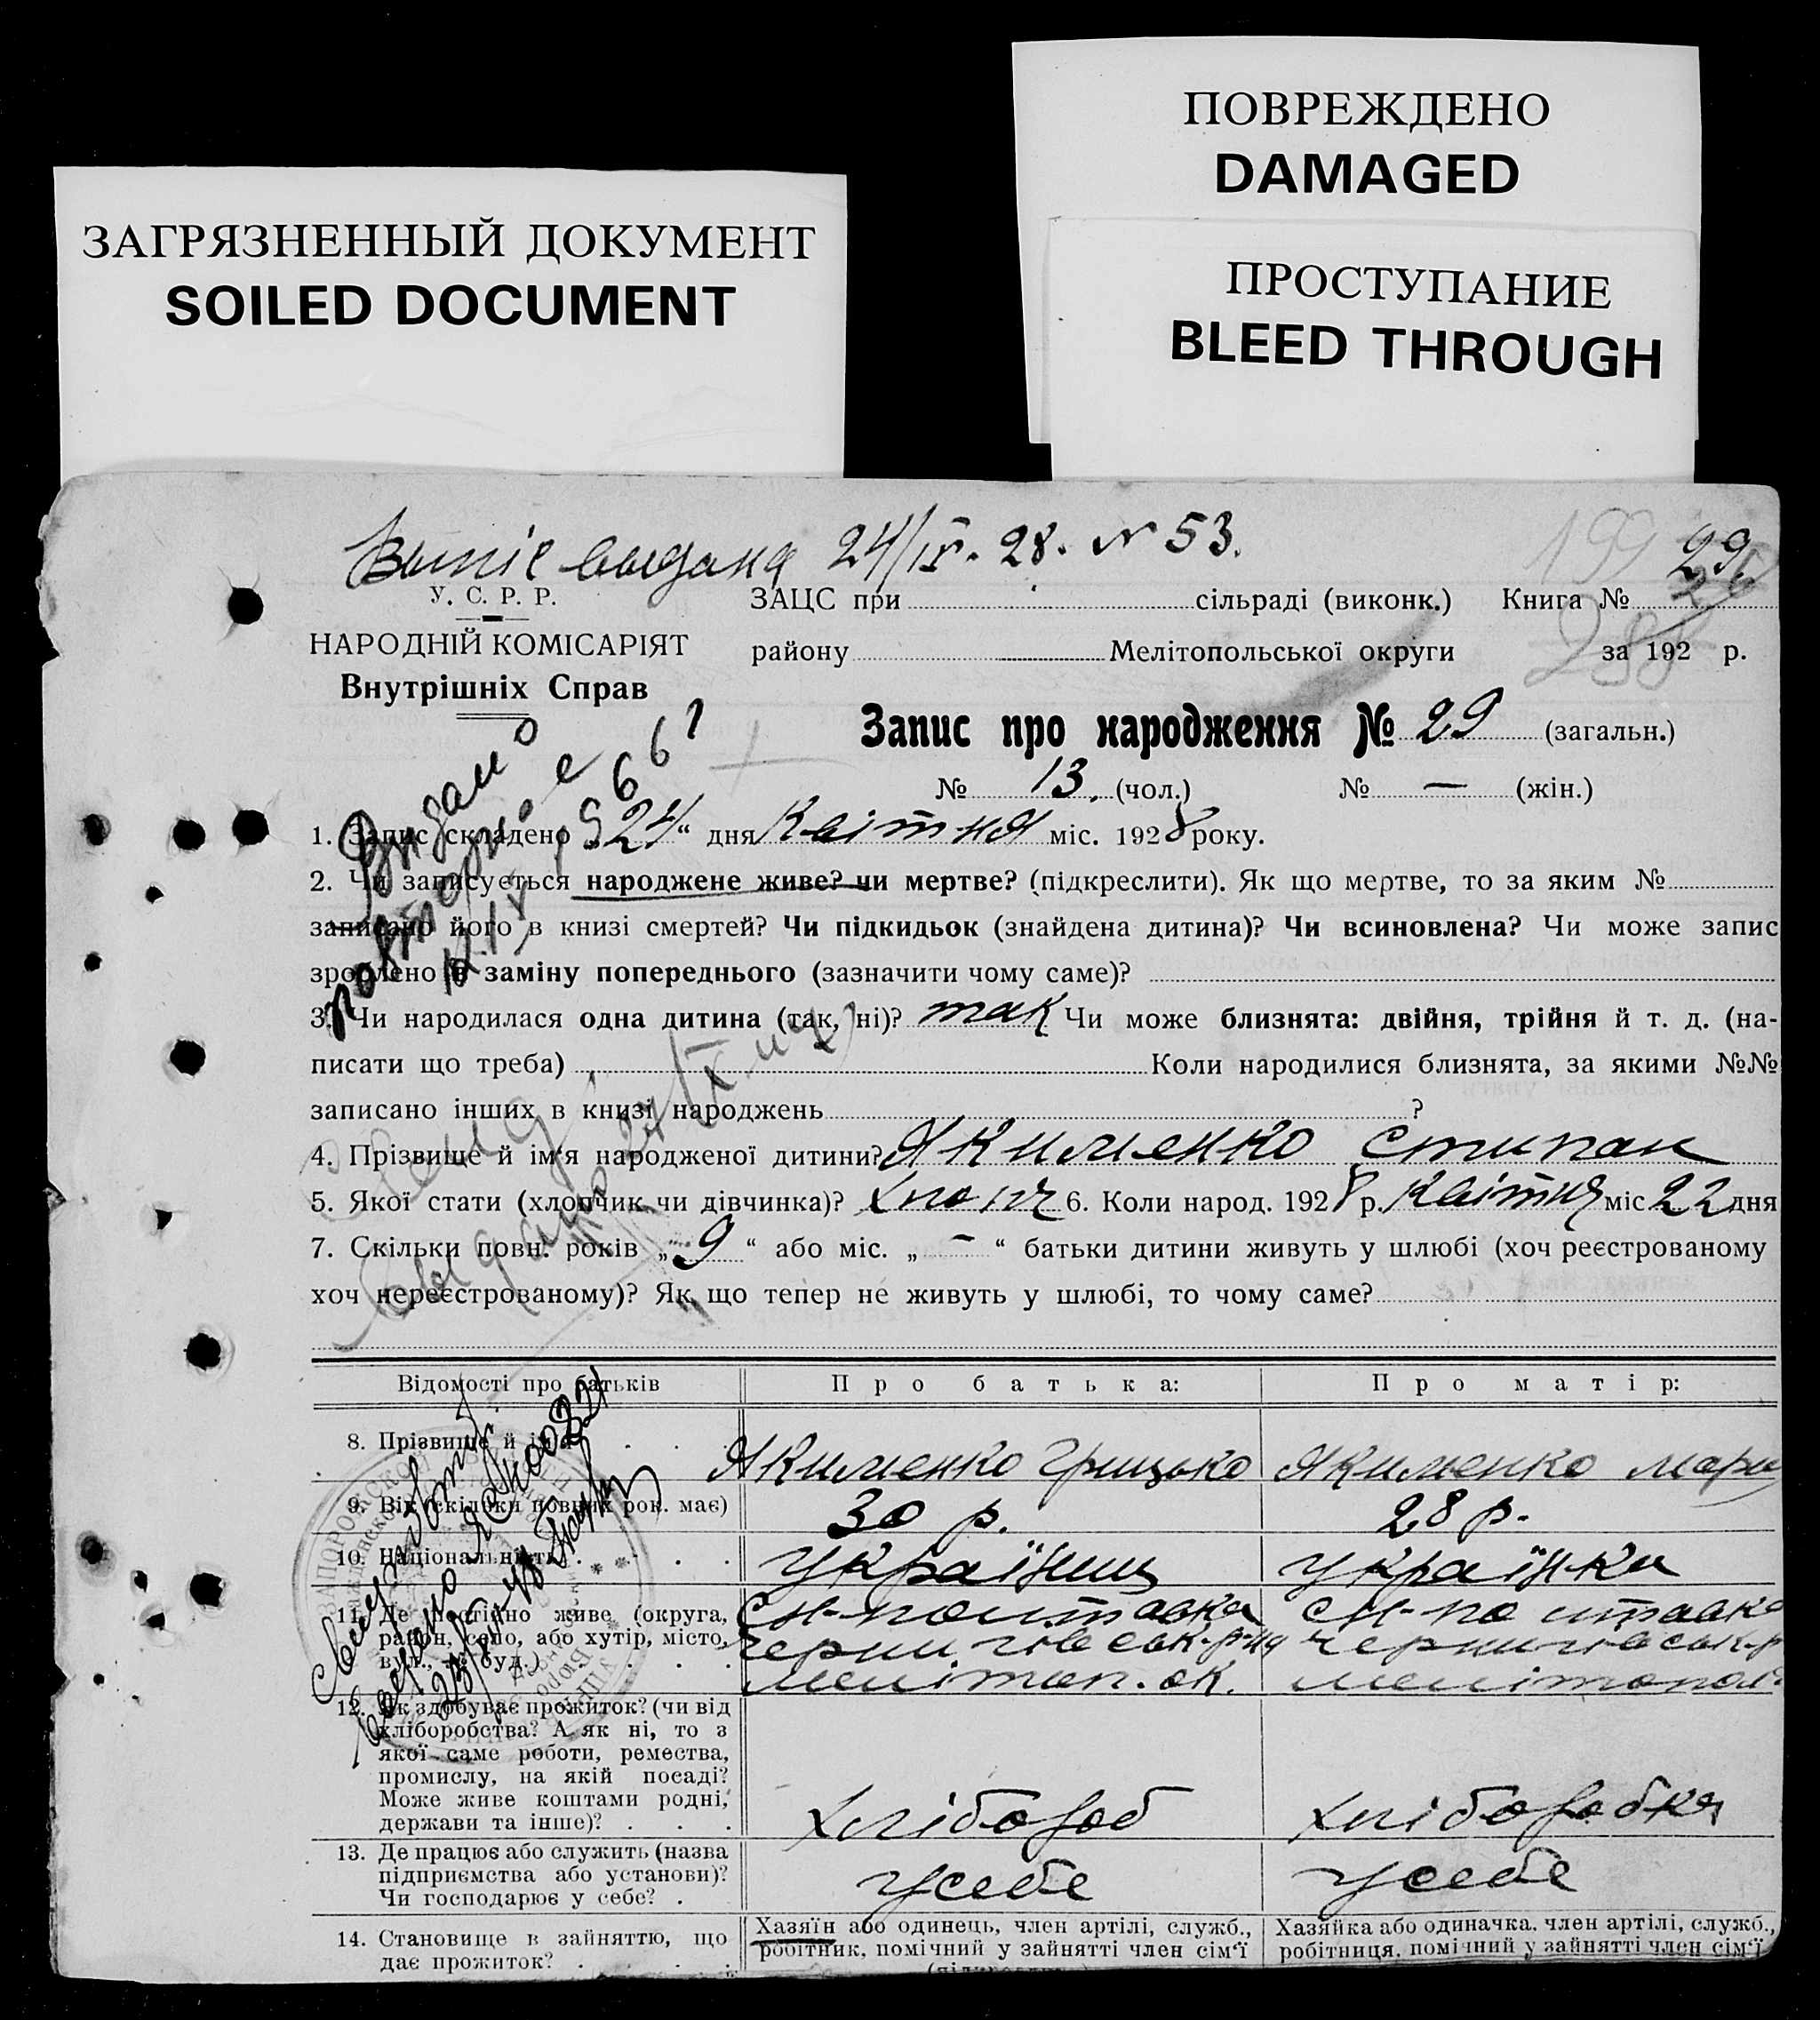 ПОВРЕЖДЕНО
DAMAGED
ЗАГРЯЗНЕННЫЙ ДОКУМЕНТ
SOILED DOCUMENT
ПРОСТУПАНИЕ
BLEED THROUGH
24/IV-28. N 53.
199
29
У. С. Р. Р.
ЗАЦС при сільраді (виконк.) Книга №
НАРОДНІЙ КОМІСАРІЯТ
району Мелітопольської округи за 192 р.
Внутрішніх Справ
Запис про народження № 29 (загальн.)
№ 13. (чол.) № — (жін.)
Видано
повторно
1. Запис складено „24“ дня Квітня міс. 1928 року.
2. Чи записується народжене живе? чи мертве? (підкреслити). Як що мертве, то за яким №
записано його в книзі смертей? Чи підкидьок (знайдена дитина)? Чи всиновлена? Чи може запис
зроблено в заміну попереднього (зазначити чому саме)?
3. Чи народилася одна дитина (так, ні)? так Чи може близнята: двійня, трійня й т. д. (на-
писати що треба) Коли народилися близнята, за якими №№
записано інших в книзі народжень ?
4. Прізвище й ім'я народженої дитини? Якименко Стипан
5. Якої стати (хлопчик чи дівчинка)? хлопч 6. Коли народ. 1928 р. квітня міс 22 дня
7. Скільки повн. років „ 9 “ або міс. „ – “ батьки дитини живуть у шлюбі (хоч реєстрованому
хоч нереєстрованому)? Як що тепер не живуть у шлюбі, то чому саме?
Відомості про батьків Про батька: Про матір:
8. Прізвище й ім'я Якименко Грицько Якименко Мария
9. Вік (скільки повних рок. має) 30 р. 28 р.
10. Національність Україниц Українка
11. Де постійно живе (округа,
район, село, або хутір, місто,
вул., № буд.)
Черниговськ. р-на
Мелітоп. ок.
12. Як здобуває прожиток? (чи від
хліборобства? А як ні, то з
якої саме роботи, ремества,
промислу, на якій посаді?
Може живе коштами родні,
держави та інше)? Хлібороб Хліборобка
13. Де працює або служить (назва
підприємства або установи)?
Чи господарює у себе? усебе усебе
14. Становище в зайняттю, що
дає прожиток?
Хазяїн або одинець, член артілі, служб.,
робітник, помічний у зайнятті член сім'ї
Хазяйка або одиначка, член артілі, служб.,
робітниця, помічний у зайнятті член сім'ї